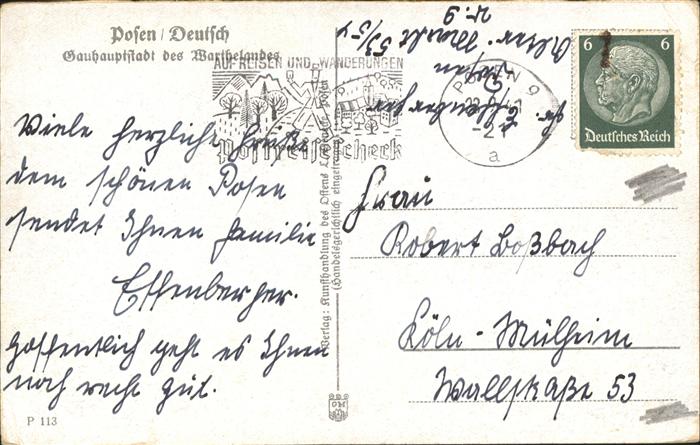 Posen / Deutsch
Gauhauptstadt des Warthelandes
Viele herzliche Grüße
dem schönen Posen
sendet Ihnen Familie
Effenberger.
Hoffentlich geht es Ihnen
noch recht gut.
P 113
AUF REISEN UND WANDERUNGEN
Postreisescheck
POSEN 9
a
Verlag: Kunsthandlung des Ostens Posen
(Handelsgerichtlich eingetragen)
Effenberger
Posen
Alter Markt 53/54
W. 9
6 6
Deutsches Reich
Frau
Robert Boßbach
Köln - Mülheim
Wallstraße 53